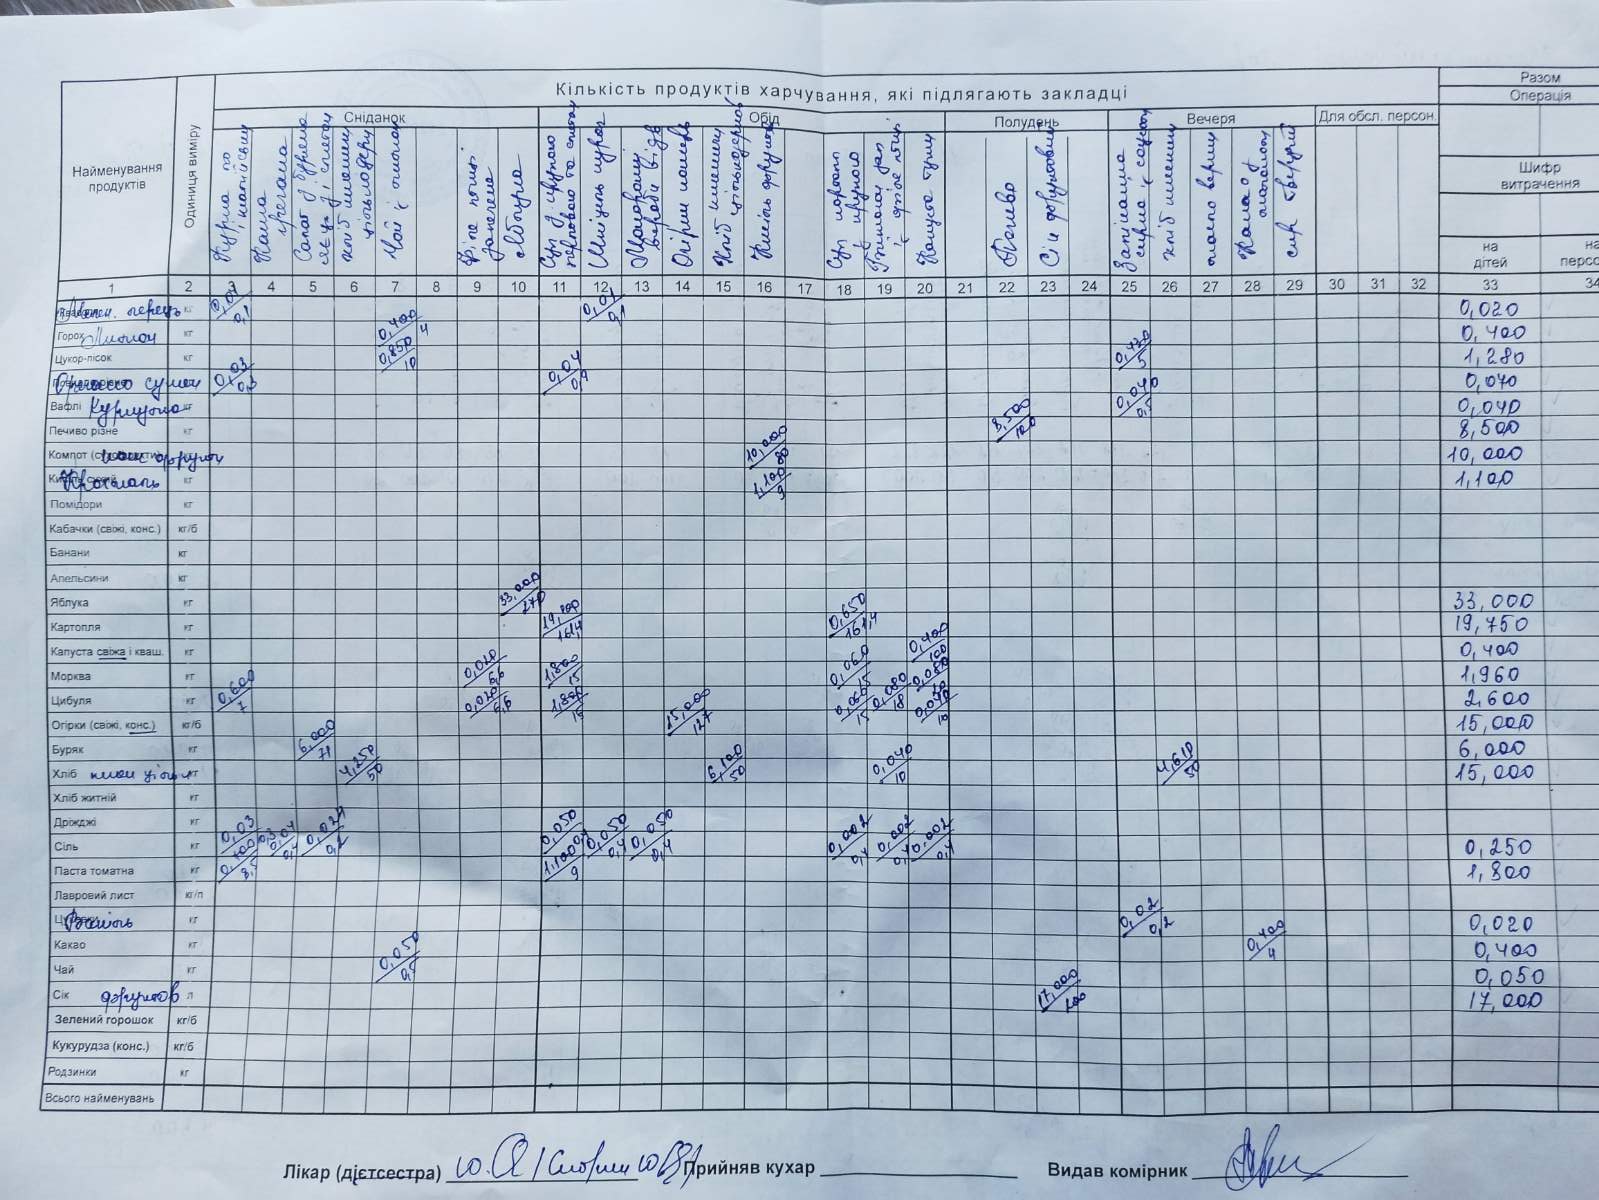 Кількість продуктів харчування, які підлягають закладці
Разом
Операція
Найменування продуктів
Одиниця виміру
Сніданок
Обід
Полудень
Вечеря
Для обсл. персон.
Шифр витрачення
на дітей
Каша
Хліб пшенич
цільнозерн
Чай з лимоном
Філе
запечена
Яблука
Макаронні вироби відв
Огірки
Хліб пшенич
цільнозернов
Кисіль фруктов
Капуста туш
Печиво
Сік фруктовий
Запіканка
хліб пшенич
масло верш
Какао з молоком
сир твердий
1 2 3 4 5 6 7 8 9 10 11 12 13 14 15 16 17 18 19 20 21 22 23 24 25 26 27 28 29 30 31 32 33 34
перець кг 0,01/0,1 0,01/0,1 0,020
Горох Лимон кг 0,400/4 0,400
Цукор-пісок кг 0,850/10 0,430/5 1,280
сушен 0,03/0,3 0,04/0,4 0,070
Вафлі Куркума кг 0,040/0,5 0,040
Печиво різне кг 8,500/100 8,500
Компот фрукти 10,000/80 10,000
Крохмаль кг 1,100/9 1,100
Помідори кг
Кабачки (свіжі, конс.) кг/б
Банани кг
Апельсини кг
Яблука кг 33,000/270 33,000
Картопля кг 19,100/161,4 0,650/161,4 19,750
Капуста свіжа і кваш. кг 0,400/100 0,400
Морква кг 0,020/6,6 1,800/15 0,060/15 0,080/20 1,960
Цибуля кг 0,600/7 0,020/6,6 1,800/15 0,060/15 0,080/18 0,040/10 2,600
Огірки (свіжі, конс.) кг/б 15,000/127 15,000
Буряк кг 6,000/71 6,000
Хліб кг 4,250/50 6,100/50 0,040/10 4,610/50 15,000
Хліб житній кг
Дріжджі кг
Сіль кг 0,03/0,3 0,04/0,4 0,02/0,2 0,050/0,4 0,050/0,4 0,050/0,4 0,002/0,4 0,002/0,4 0,002/0,4 0,250
Паста томатна кг 0,700/8,5 1,100/9 1,800
Лавровий лист кг/п
Ваніль кг 0,02/0,2 0,020
Какао кг 0,400/4 0,400
Чай кг 0,050/0,5 0,050
Сік фруктов л 17,000/100 17,000
Зелений горошок кг/б
Кукурудза (конс.) кг/б
Родзинки кг
Всього найменувань
Лікар (дієтсестра) Прийняв кухар Видав комірник